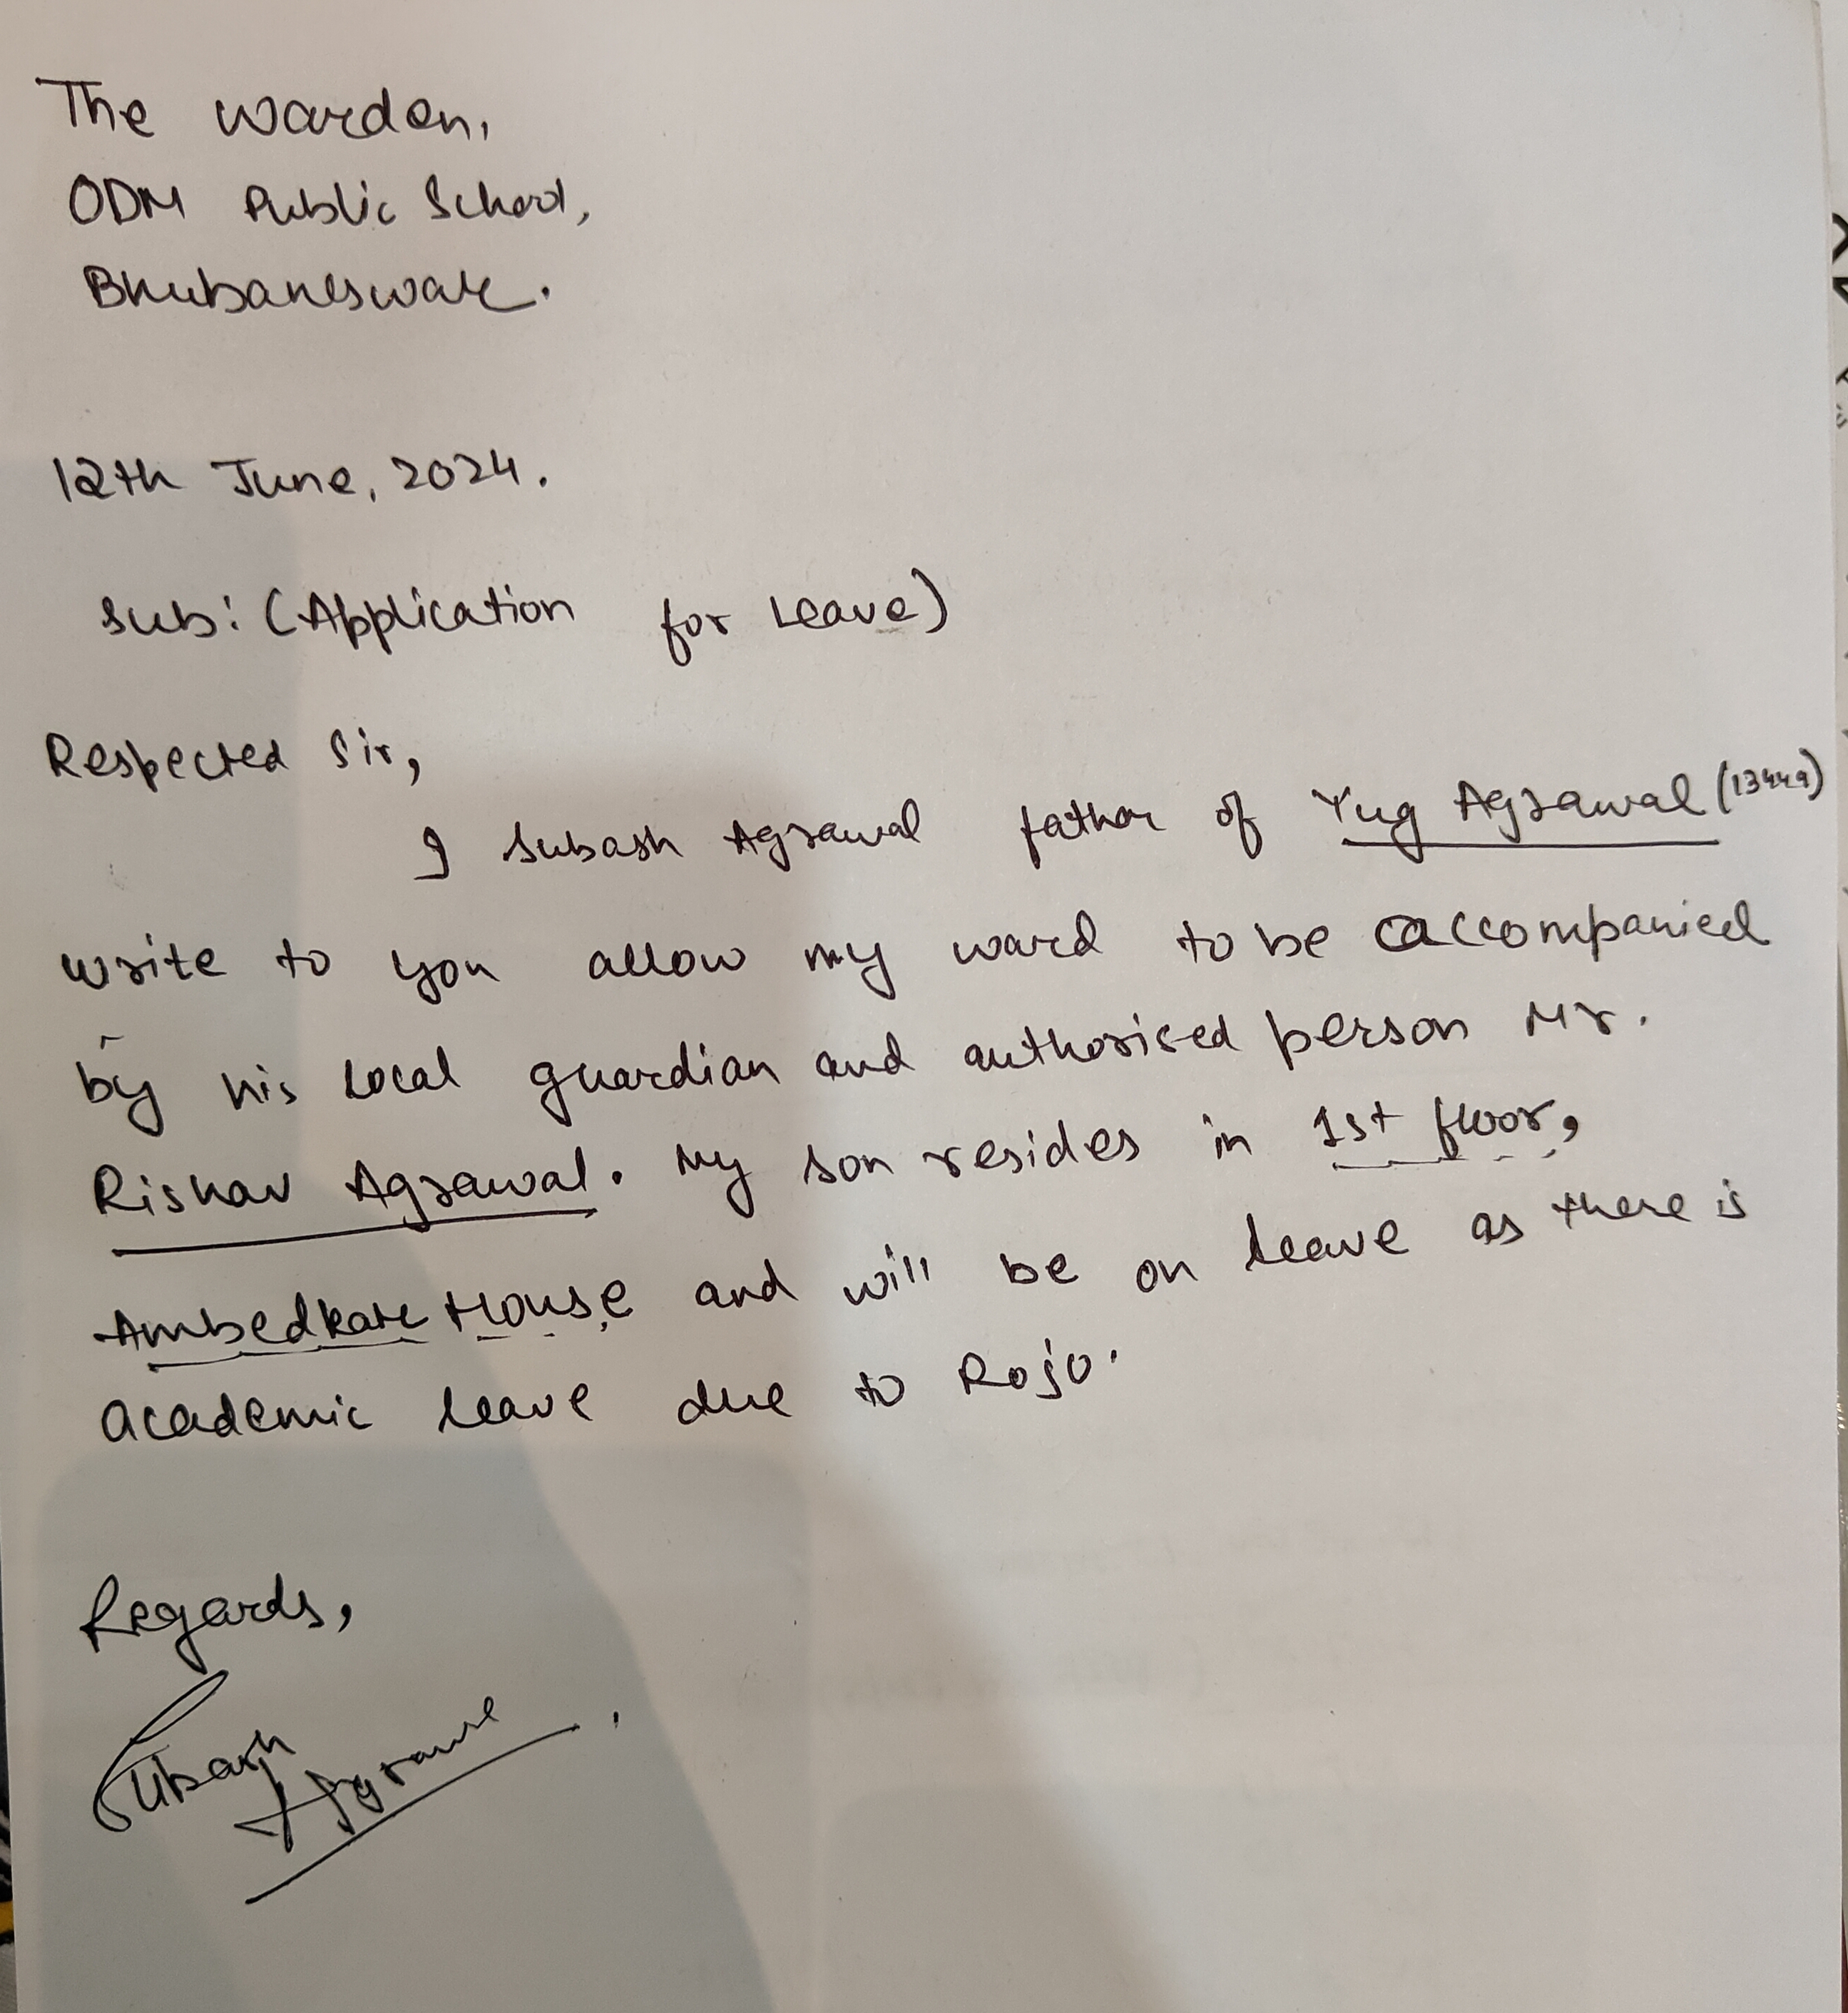 The Warden,
ODM Public School,
Bhubaneswar.
12th June, 2024.
Sub: (Application for Leave)
Respected Sir,
I Subash Agrawal father of Yug Agrawal (13449)
write to you allow my ward to be accompanied
by his local guardian and authorised person Mr.
Rishav Agrawal. My son resides in 1st floor,
Ambedkar House and will be on leave as there is
academic leave due to Rojo.
Regards,
Subash
Agrawal